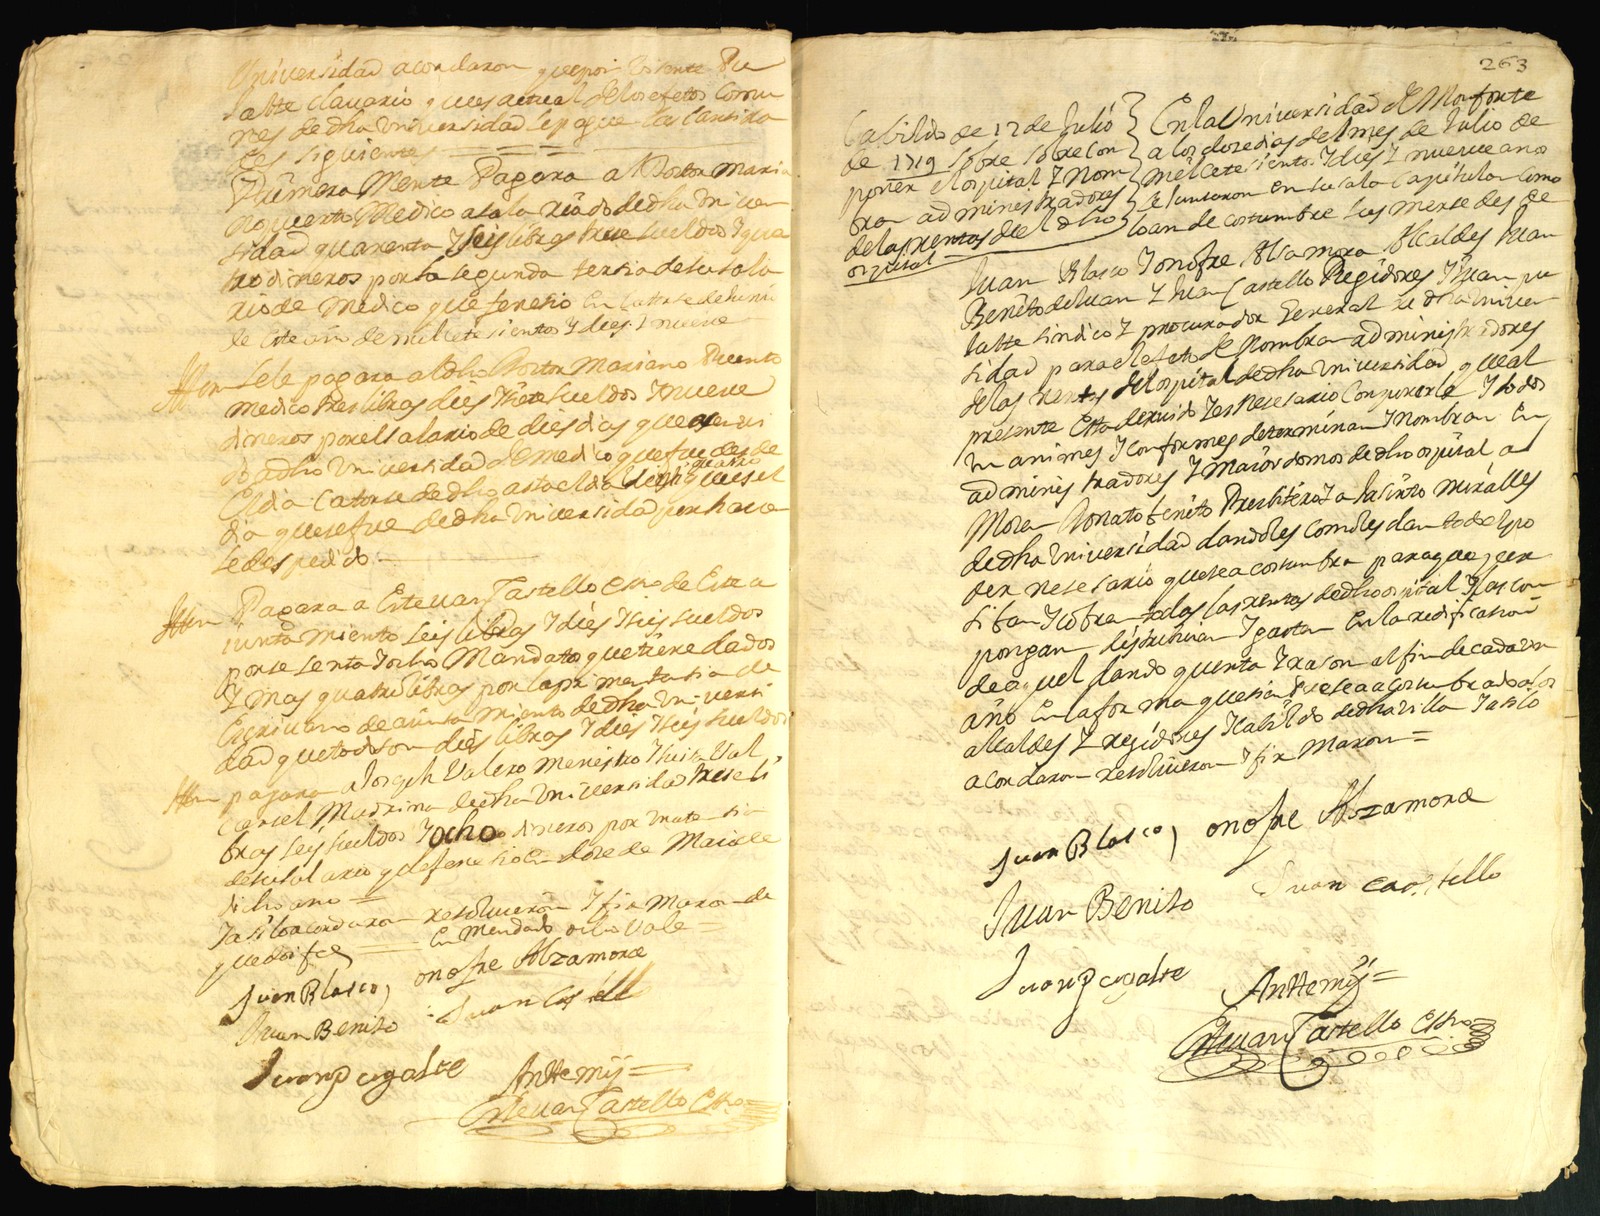 Universidad acordaron que por
labte clavario ques actual de los efetos Comu
nes de dha Universidad le pague las Cantida
des siguientes
Primera Mente Pagara al Dotor Maria
no puerto Medico asalariado de dha Univer
sidad quarenta y seis libras trese sueldos y qua
tro dineros por la segunda tersia de su sala
rio de Medico que fenesio en de Junio
de este año de mil cete sientos y dies y nueve
Ittem se le pagara al dho Dotor Mariano Puerto
medico tres libras dies y siete sueldos y nueve
dineros por el salario de dies dias que
do a dha Universidad de medico que fue desde
el dia catorse de dho asta el dia veinti quatro ques el
dia que se fue de dha Universidad por haver
se despedido
Ittem Pagara a Estevan Castello Esno de Este a
iuntamiento seis libras y dies y seis sueldos
por sesenta y ocho Mandatos que tiene dados
y mas quatro libras por la primera tersia de
Escrivano de aiuntamiento de dha Universi
dad que todo son dies libras y dies y seis sueldos
Ittem pagara a Joseph Valero Menistro
carsel de dha Universidad trese li
bras seis sueldos y ocho dineros por una tersia
de su salario que fenesio en dose de Maio de
dicho año
Y asi lo acordaron resolvieron y firmaron de
que doi fee = Enmendado ocho Vale =
Juan Blasco, onofre Alzamora
Juan Benito Juan Castell
Juan Pugalte
Antemy =
Estevan Castello Essno
263
Cabildo de 12 de Julio
de 1719 sobre sobre con
poner el ospital y nom
brar administradores
de las rentas del dho
ospital
En la Universidad de Monforte
a los dose dias del mes de Julio de
mil cete siento y dies y nueve años
se Juntaron en su sala Capitular Como
loan de costumbre sus mersedes de
Juan Blasco y onofre Alsamora Alcaldes Juan
Benito de Juan y Juan Castello Regidores y Juan pu
labte sindico y procurador General de dha Univer
sidad para el efeto de Nombrar administradores
de las rentas del ospital de dha Universidad que al
presente Esta deruido y es Nesesario Componerle y todos
unanimes y conformes determinan y Nombran En
administradores y Maiordomos de dho ospital a
Mosen Donato benito Presbitero y a Jasinto miralles
de dha Universidad dandoles como les dan todo el po
der nesesario que sea costumbre para que per
siban y cobren todas las rentas de dho ospital y las con
pongan distribuian y gasten En la redificasion
de aquel dando quenta y rason al fin de cada un
año En la forma que sienpre sea acostumbrado a los
alcaldes y regidores y Cabildo de dha villa y asi lo
acordaron resolvieron y firmaron =
Juan Blasco, onofre Alzamora
Juan Benito Juan castello
Juan Pugalte
Antemy =
Estevan Castello Essno